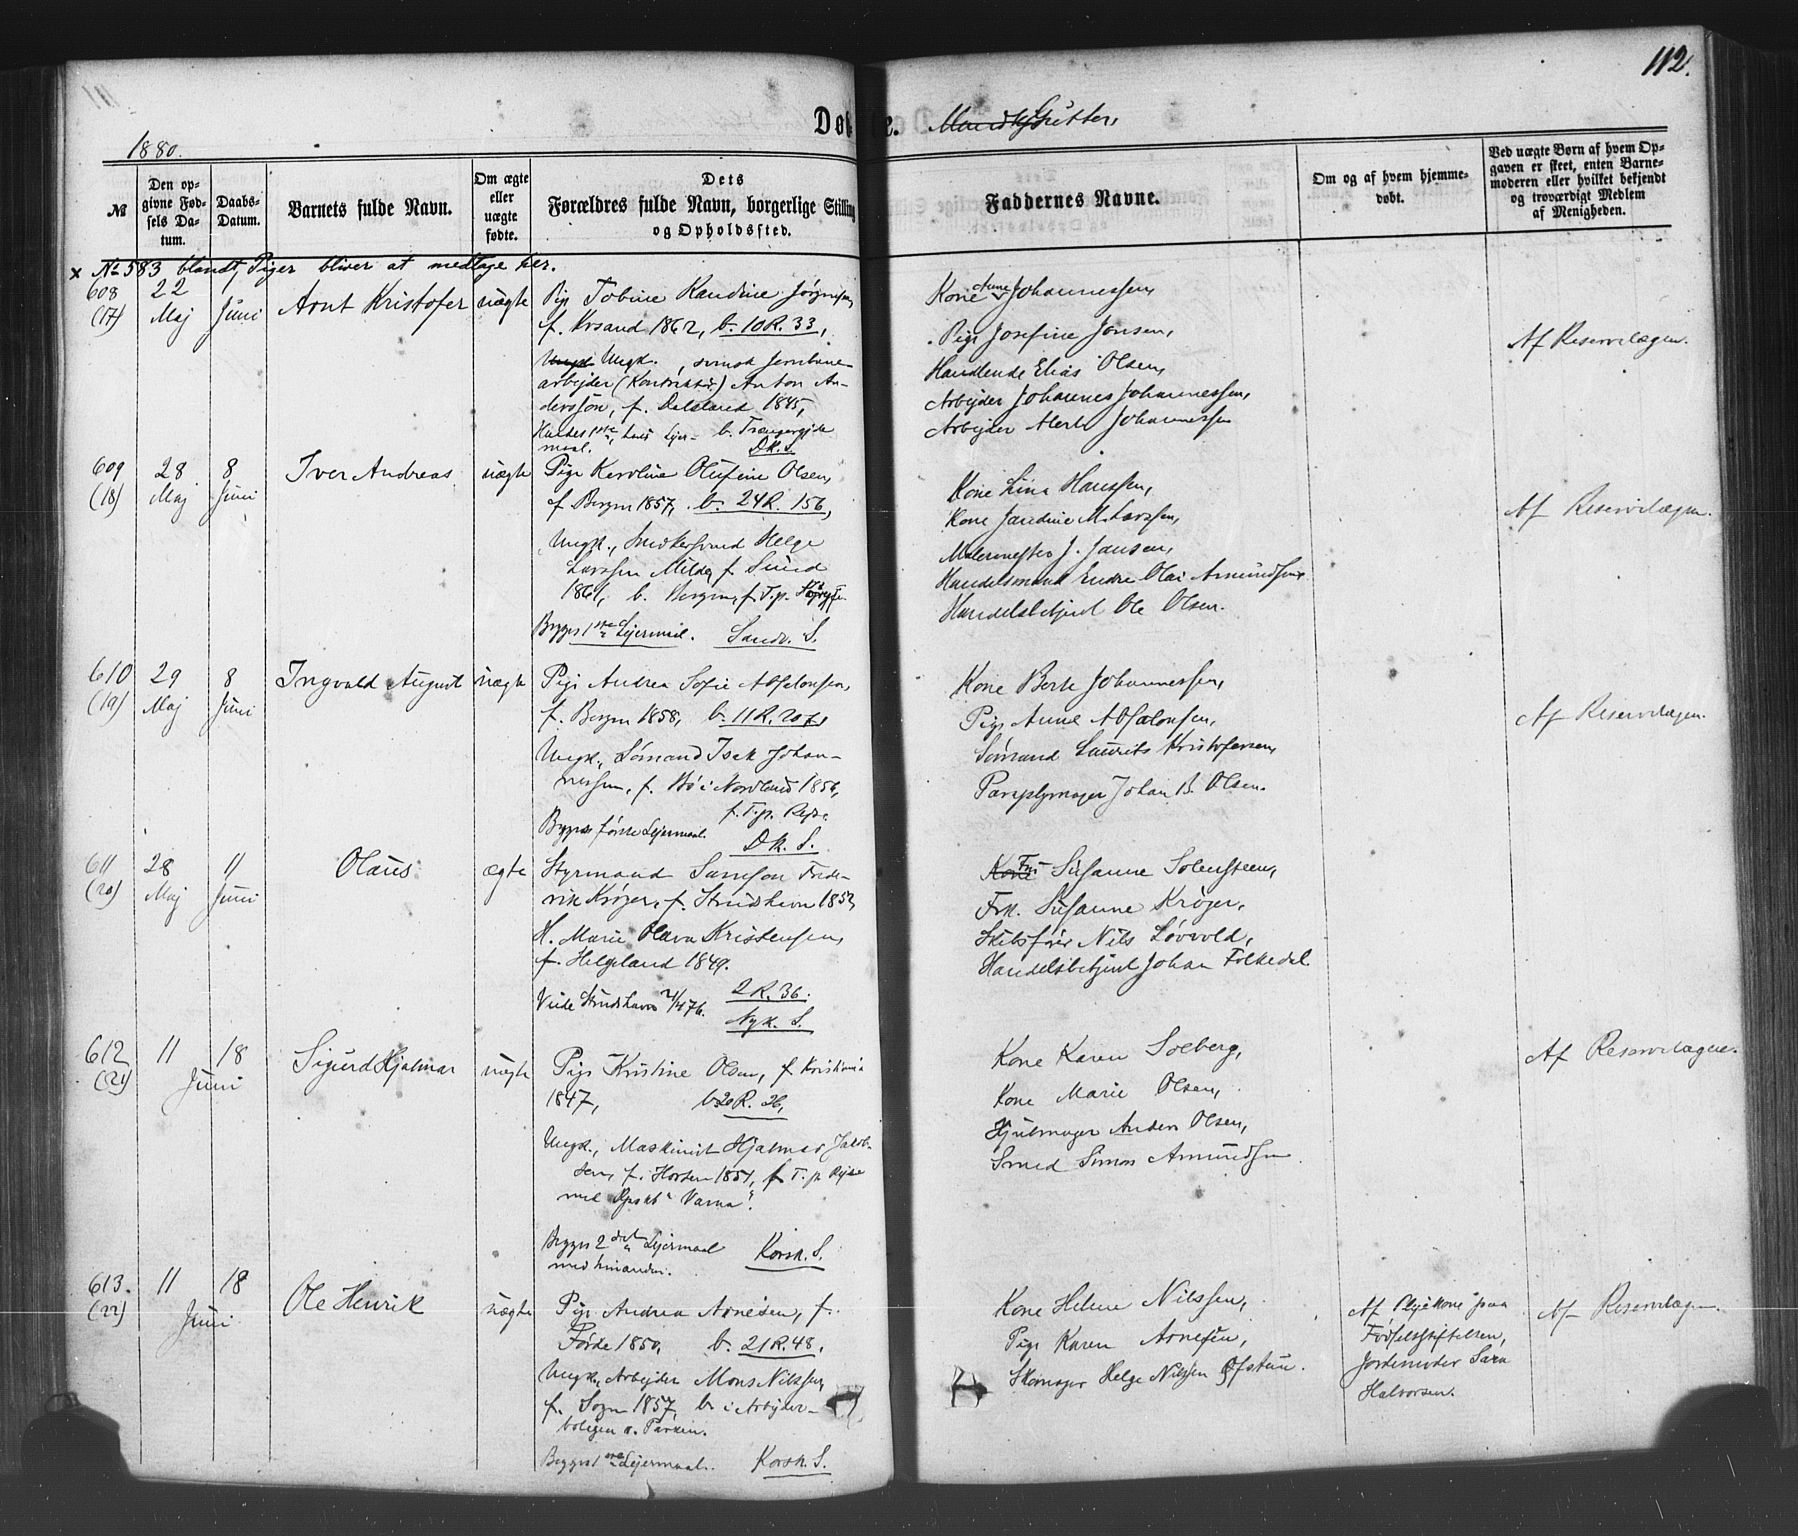 112.
Døbte. Mandkj Gutter,
1880.
№
Den opgivne Fødsels Datum.
Daabs-Datum.
Barnets fulde Navn.
Om ægte eller uægte fødte.
Dets Forældres fulde Navn, borgerlige Stilling og Opholdssted.
Faddernes Navne.
Om og af hvem hjemmedøbt.
Ved uægte Børn af hvem Opgaven er skeet, enten Barnemoderen eller hvilket bekjendt og troværdigt Medlem af Menigheden.
x № 583 blandt Piger bliver at medtage her.
608 (17)
22 Maj
Juni
Arnt Kristofer
uægte
Pige Tobine Randine Jørgensen,
f. Krsand 1862, b. 10 R. 33,
Ungk., svensk Jernbane-
arbejder (Kontrakter) Anton An-
dersson, f. Dalsland 1845,
DK. S.
Kone Anne Johannessen,
Pige Josefine Jansen,
Handlende Elias Olsen,
Arbejder Johannes Johannessen,
Arbejder Johannessen
Af Reservelægen.
609 (18)
28 Maj
8 Juni
Iver Andreas
uægte
Pige Karoline Olufine Olsen,
f. Bergen 1857, b. 24 R. 156,
Ungk., Snedkersvend Helge
Larssen Milde, f. Sund
1861, b. Bergen, f. T. p.
Begges 1ste Lejermaal. Sandv. S.
Kone Lina Hanssen,
Kone Jandine M. Larssen,
Malermester J. Jansen,
Handelsmand Endre Olai Amundsen,
Handelsbetjent Ole Olsen.
Af Reservelægen.
610 (19)
29 Maj
8 Juni
Ingvald August
uægte
Pige Andrea Sofie Absalonsen,
f. Bergen 1858, b. 11 R. 20
Ungk., Sømand Isak Johan-
nessen, f. Bø i Nordland 1856,
f. T. p. Rejse
Begges første Lejermaal.
DK. S.
Kone Berte Johannessen,
Pige Anne Absalonsen,
Sømand Laurits Kristofersen,
Paraplymager Johan B. Olsen.
Af Reservelægen.
611 (20)
28 Maj
11 Juni
Olaus
ægte
Styrmand Samson Frede-
rik Krøger, f. Strudshavn 1852,
H. Marie Olava Kristensen,
f. Helgeland 1849.
Viede Strudshavn 2/4 76.
2 R. 36.
Nyk. S.
Fru Susanne Solensteen,
Frk. Susanne Krøger,
Skibsfører Nils Løvvold,
Handelsbetjent Johan Folkedal.
612 (21)
11
18
Juni
Sigurd Hjalmar
uægte
Pige Kristine Olsen, f. Kristiania
1847, b. 20 R. 26,
Ungk., Maskinist Hjalmar Jakob-
sen, f. Horten 1851, f. T. p. Rejse
med Dpskb "Varna".
Begges 2det Lejermaal
med hinanden. Korsk. S.
Kone Karen Solberg,
Kone Marie Olsen,
Hjulmager Anders Olsen,
Smed Simon Amundsen
Af Reservelægen.
613. (22)
11
18
Juni
Ole Henrik
uægte
Pige Andrea Arnesen, f.
Førde 1850, b. 21 R. 48,
Ungk., Arbejder Mons Nilssen,
f. Sogn 1857, b. i Arbejder-
boligen v. Parken.
Begges 1ste Lejermaal. Korsk. S.
Kone Helene Nilssen,
Pige Karen Arnesen,
Skomager Helge Nilssen Ofstun.
Af Plejekone paa
Fødselsstiftelsen,
Jordemoder Sara
Halvorsen.
Af Reservelægen.